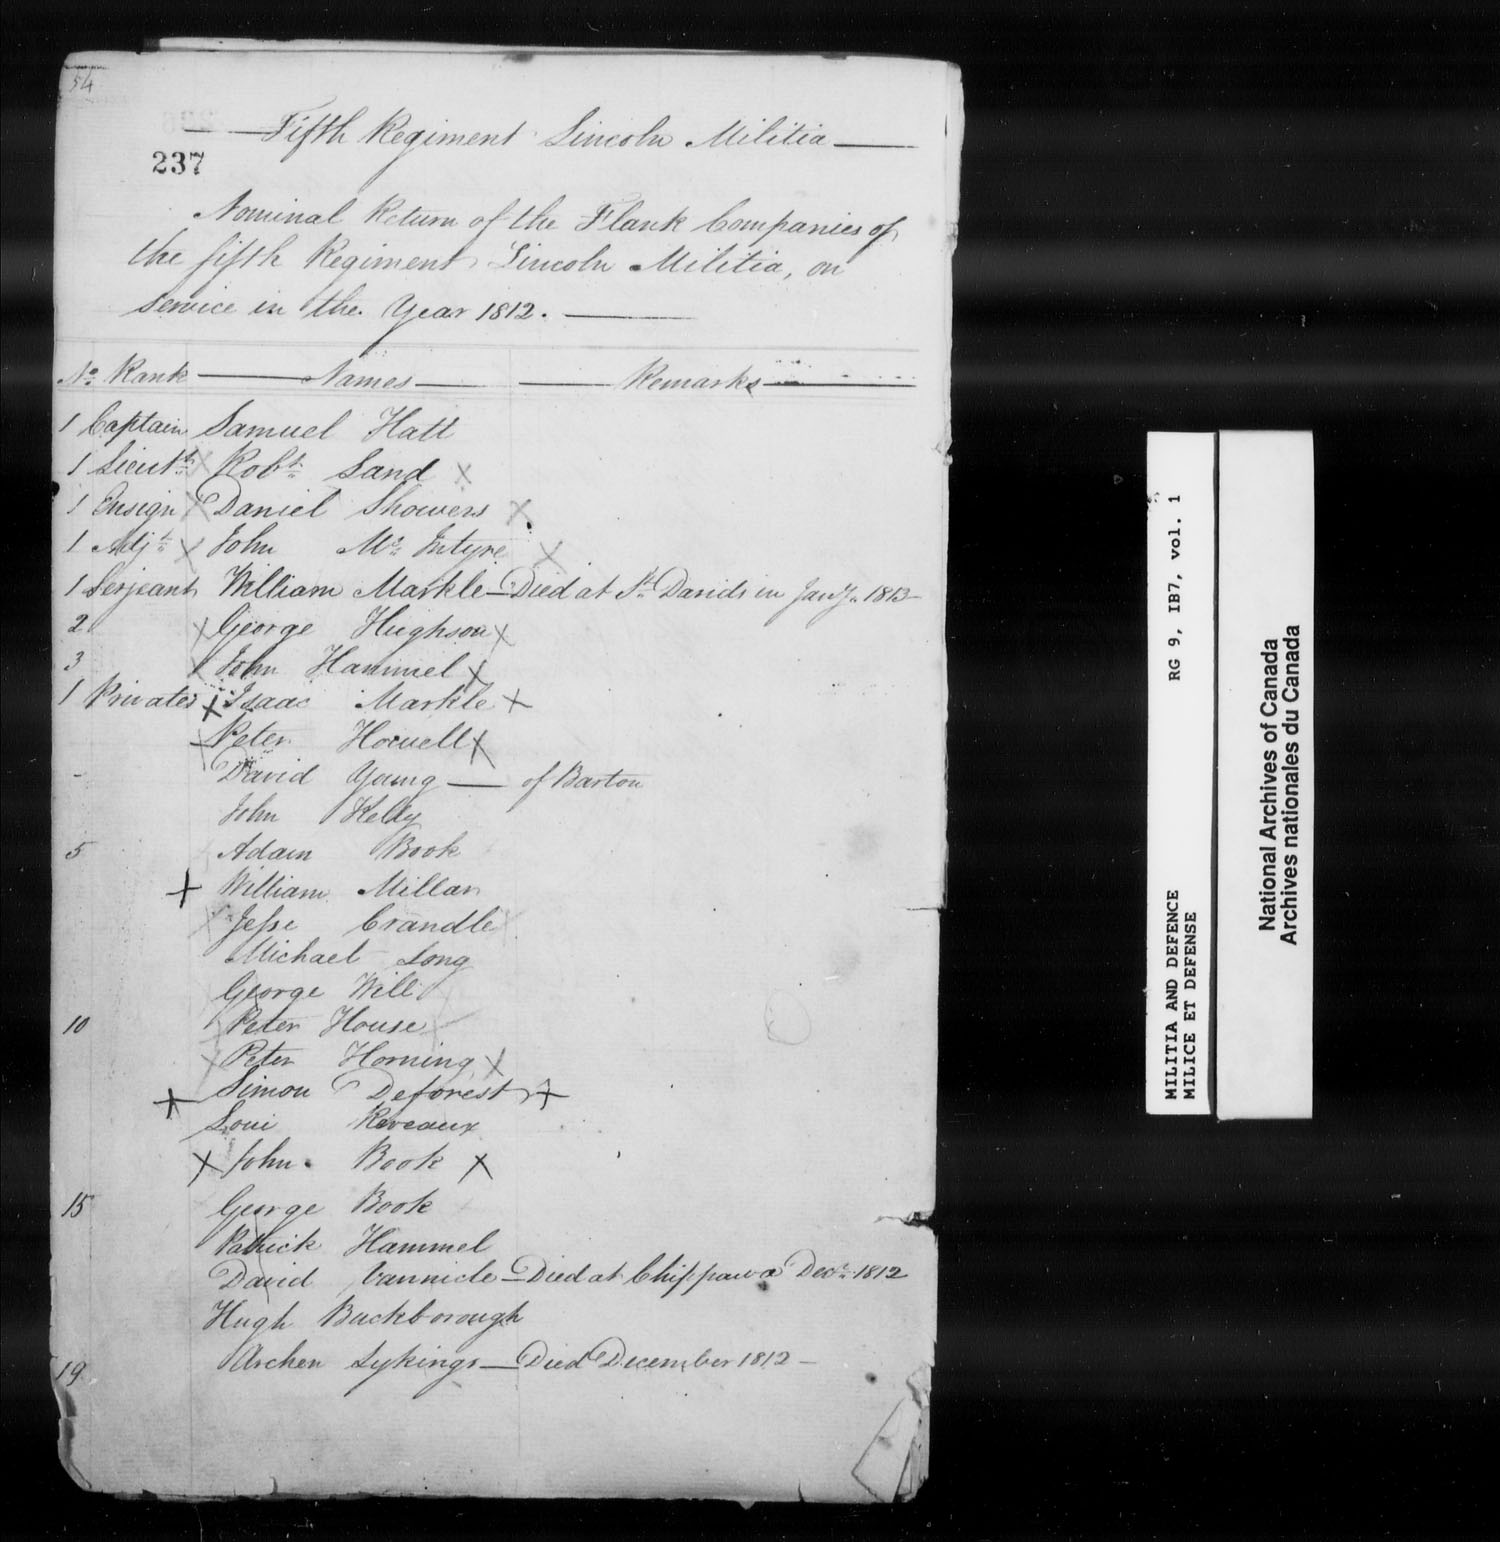 54
Fifth Regiment Lincoln Militia
237
Nominal Return of the Flank Companies of
the fifth Regiment Lincoln Militia, on
service in the Year 1812.
No. Rank Names Remarks
1 Captain Samuel Hatt
1 Lieutt. X Robt. Land X
1 Ensign X Daniel Showers X
1 Adjt. X John Mc. Intyre X
1 Serjeant William Markle — Died at St. Davids in Jany. 1813 —
2 X George Hughson X
3 X John Hammel X
1 Privates X Isaac Markle X
X Peter Howell X
David Young — of Barton
John Kelly
5 Adam Book
X William Millar
X Jesse Crandle X
Michael Long
George Will
10 X Peter House X
X Peter Horning X
X Simon Deforest X
Loui Reveaux
X John Book X
15 George Book
Patrick Hammel
David Vannicle — Died at Chippawa Decr. 1812
Hugh Buckborough
19 Archen Sykings — Died December 1812 —
MILITIA AND DEFENCE RG 9, IB7, vol. 1
MILICE ET DEFENSE
National Archives of Canada
Archives nationales du Canada